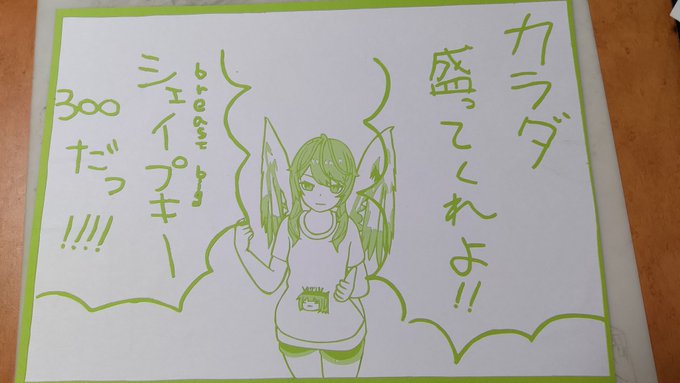 カラダ
盛ってくれよ!!
breast big
シェイプキー
300
だっ
!!!!